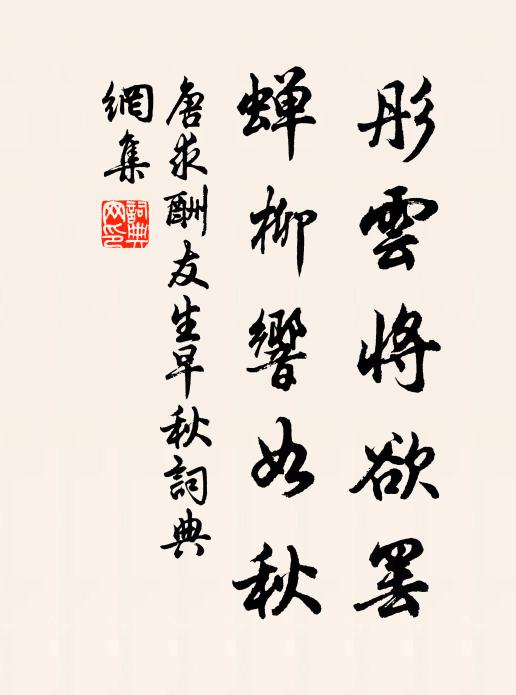 彤雲將欲罷
蟬柳響如秋
唐求酬友生早秋詞典
網集
詞典網印